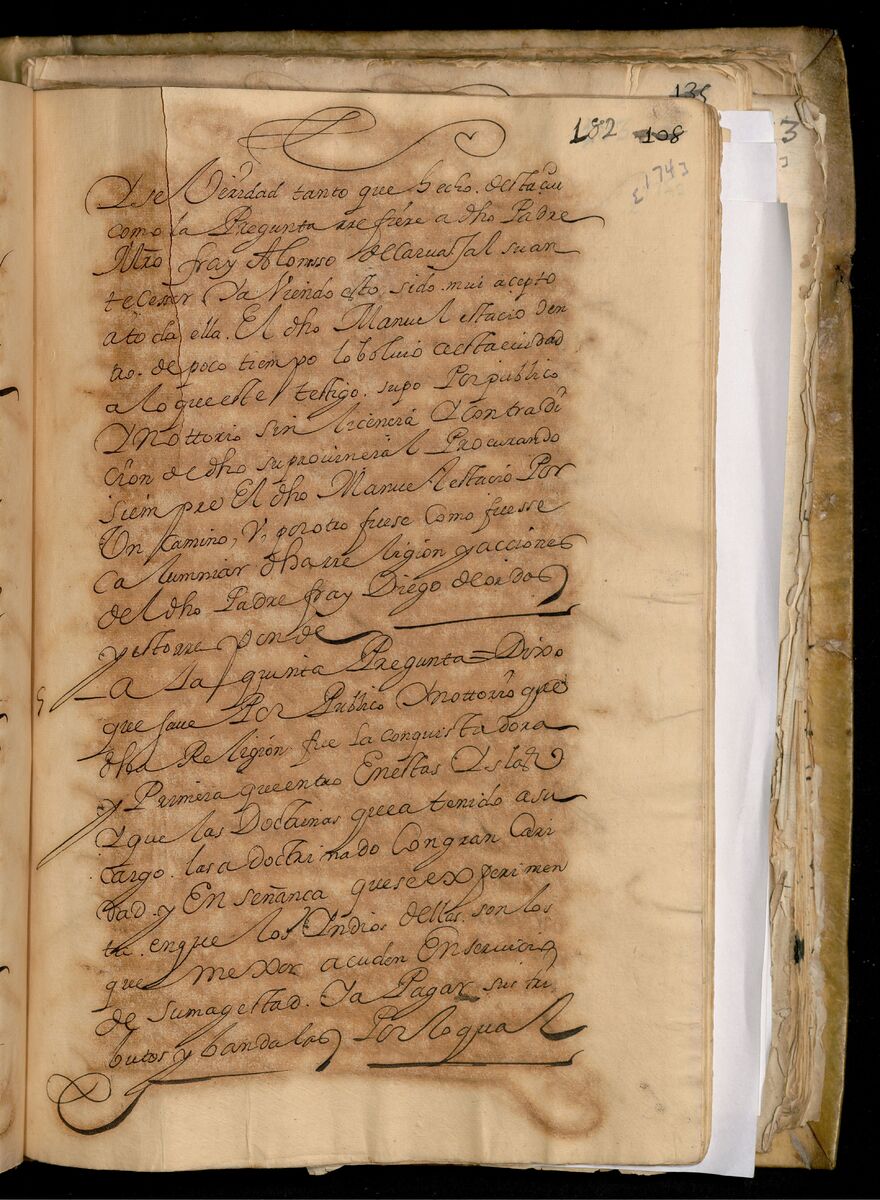 135
182 108
3
174
Y se Veríʳdad tanto que hecho. desta cau
como la Pregunta rrefiére a dho Padre
Mr̃o fray Alonsso de Carua Jal su an
te Cesor Ya Viendo esto, sido mui acepto
a toda ella. El dho Manuel estaçio den
tro. de poco tiempo lo boluio a esta ciudad
a lo que este testigo. supo Por publico
Y Nottorio sin licencia Y Contradi
cion de dho su prouincial Procurando
siempre El dho Manuel estacio Por
Un Camino, V, por otro fuese Como fuesse
Calumniar dha rre ligion y acciones
del dho Padre fray Diego de ordas
y esto rre ponde
5
A la quinta Pregunta = Dixo
que saue Por Publico Y nottorio que
dha Religión fue la conquistadora
y Primera que entro En estas Yslas
Y que las Doctrinas que a tenido a su
Cargo. las a doctrinado Con gran Cari
dad. y Enseñanca que se experimen
ta. en que los Yndios dellas. son los
que mexor acuden En seruicio
de su magestad. Y a Pagar sus tri
butos y bandalas Por lo qual